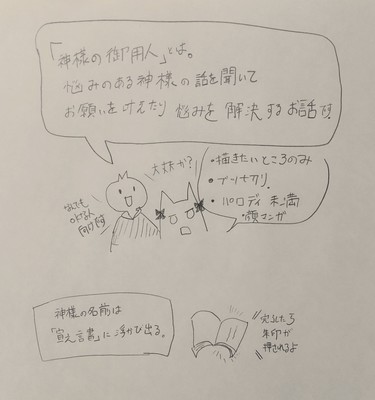 「神様の御用人」とは。
悩みのある神様の話を聞いて
お願いを叶えたり 悩みを 解決するお話です
大丈夫か?
・描きたいところのみ
・ブツギリ
・パロディ未満
・顔マンガ
なんでも
神様の名前は
「宣之言書」に浮かび出る。
完了したら
朱印が
押されるよ